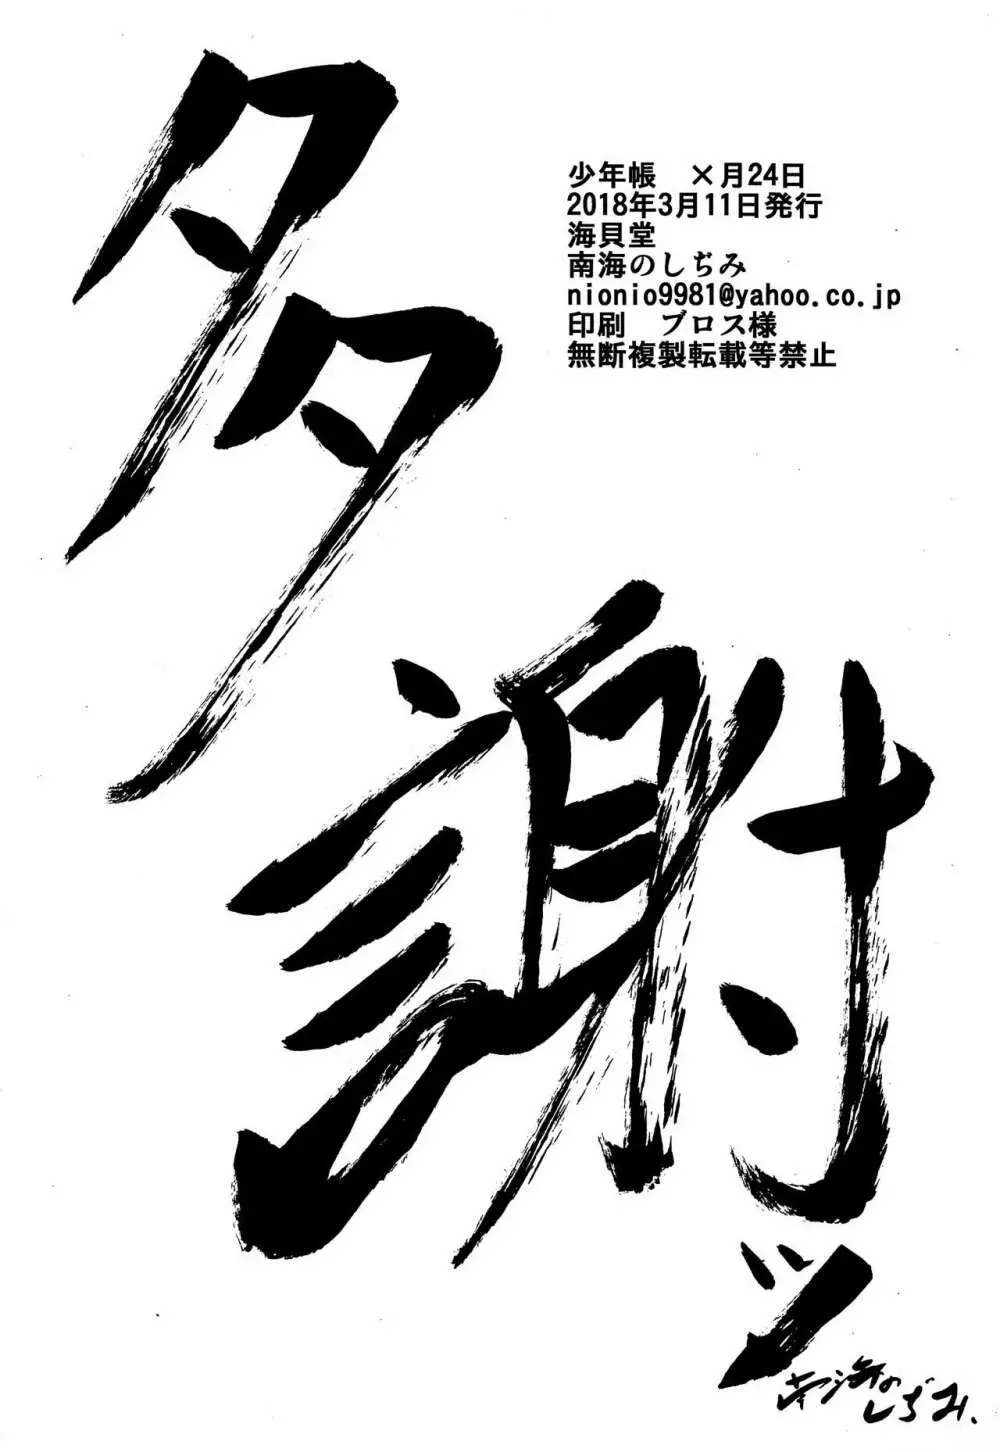 少年帳　×月24日
2018年3月11日発行
海貝堂
南海のしぢみ
nionio9981@yahoo.co.jp
印刷　ブロス様
無断複製転載等禁止
多謝ッ
南海の
しぢみ、